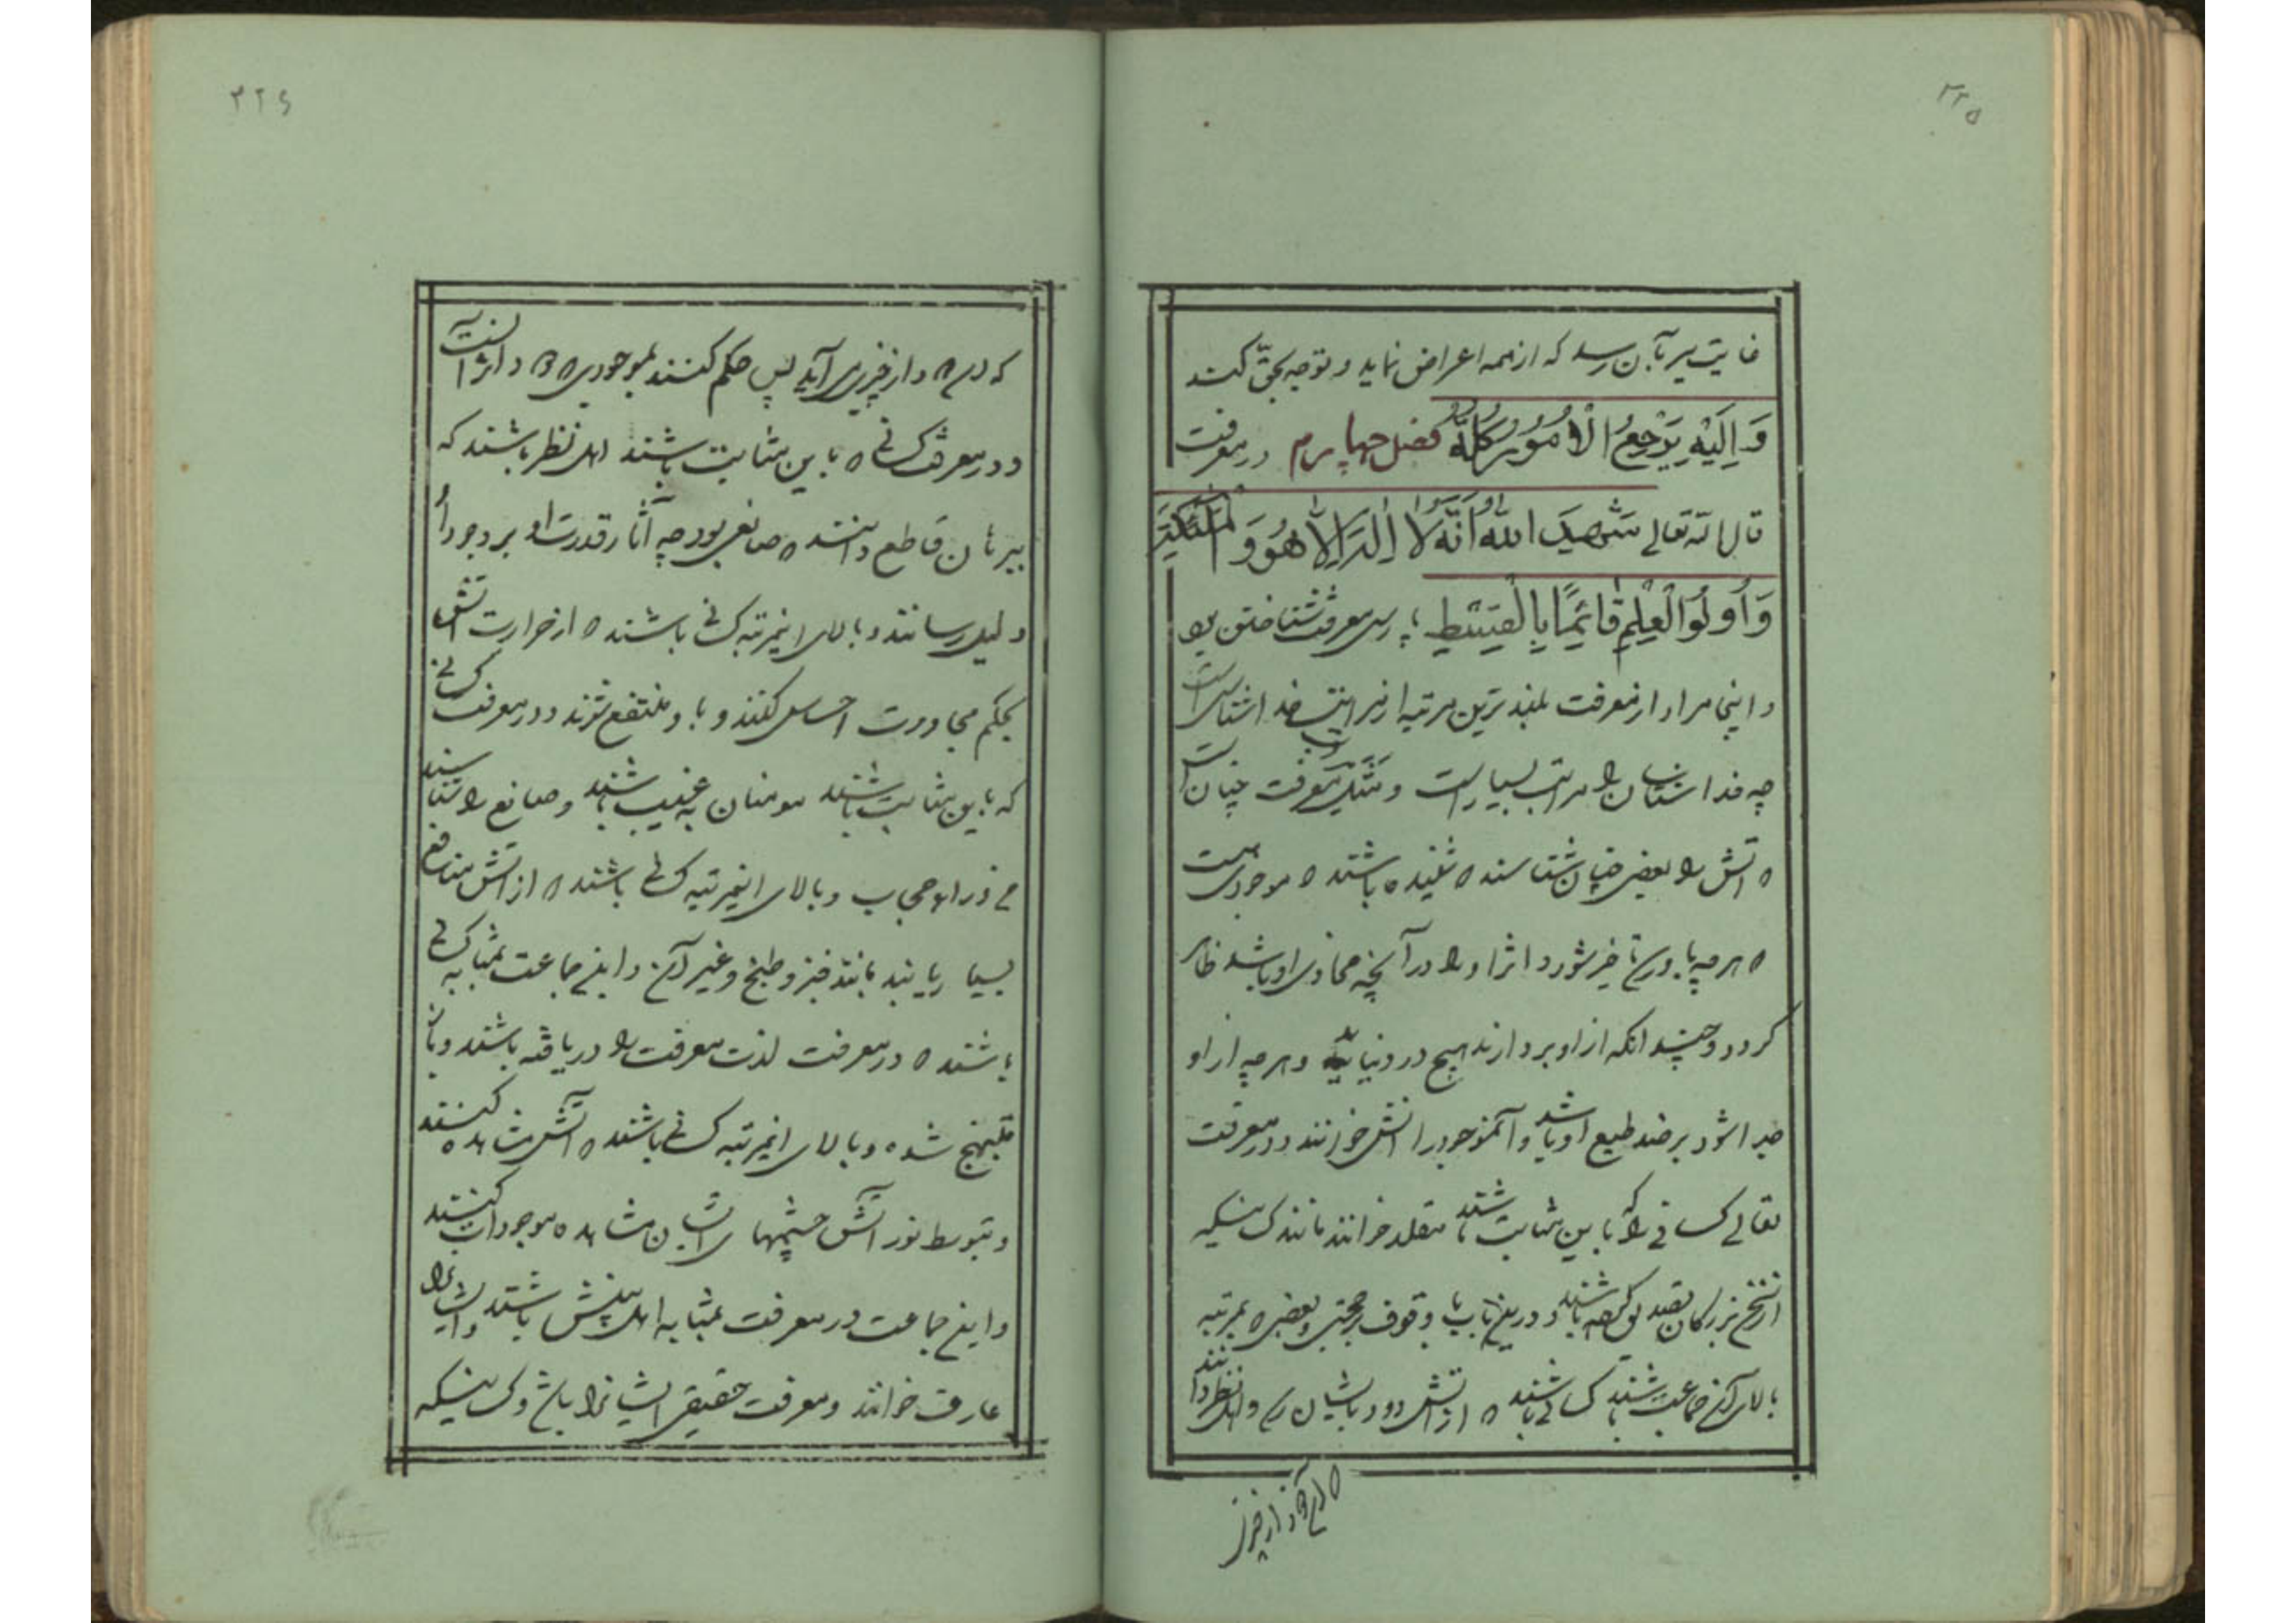 ۳۲۵
غایت سیر بآن رسد که از همه اعراض نماید و توجه بحقّ کند
وَ اِلَیْهِ یَرْجِعُ الْاُمُورُ کُلُّهُ فصل چهارم در معرفت
قال الله تعالی شَهِدَ اللّٰهُ اَنَّهُ لَا اِلٰهَ اِلَّا هُوَ وَ الْمَلٰئِکَةُ
وَ اُولُوا الْعِلْمِ قَائِمًا بِالْقِسْطِ پارسی معرفت شناختن بود
و اینجا مراد از معرفت بلندترین مرتبه از مراتب خداشناسی است
چه خداشناسان را مراتب بسیار است و مثل مراتب معرفت چنان است
که آتش را بعضی چنان شناسند که شنیده باشند که موجودی هست
که هر چه باو رسد ناچیز شود و اثر او را در آنچه محاذی او باشد ظاهر
گردد و چندانکه از او بردارند هیچ در دنیا نیاید و هر چه از او
جدا شود بر ضد طبع او باشد و آنموجود را آتش خوانند و در معرفت
تعالی کسانی را که باین مثابت باشند مقلد خوانند مانند کسانیکه
از سخن بزرگان تصدیق کرده باشند و در این باب بی وقوف بر حجتی و بعضی که بمرتبه
بالای آن جماعت باشند کسانی باشند که از آتش دود بایشان رسد و اهل نظر دانند
که این دود از چیزی
۳۲۶
که این دود از چیزی می‌آید پس حکم کنند بموجودی که دود اثر آنست
و در معرفت کسانی که باین مثابت باشند اهل نظر باشند که
ببرهان قاطع دانند که صانعی بود چه آثار قدرت او بر وجود او
دلیل رسانند و بالای اینمرتبه کسانی باشند که از حرارت آتش
بحکم مجاورت احساس کنند و باو منتفع شوند و در معرفت کسانی
که باین مثابت باشند مومنان به غیب باشند و صانع را شناسند
از وراء حجاب و بالای اینمرتبه کسانی باشند که از آتش منافع
بسیار یابند مانند خبز و طبخ و غیر آن و این جماعت بمثابه کسانی
باشند که در معرفت لذت معرفت را دریافته باشند و بآن
مبتهج شده و بالای اینمرتبه کسانی باشند که آتش مشاهده کنند
و بتوسط نور آتش چشمهای ایشان مشاهده موجودات کنند
و این جماعت در معرفت بمثابه اهل بینش باشند و ایشانرا
عارف خوانند و معرفت حقیقی ایشانرا باشد و کسانیکه